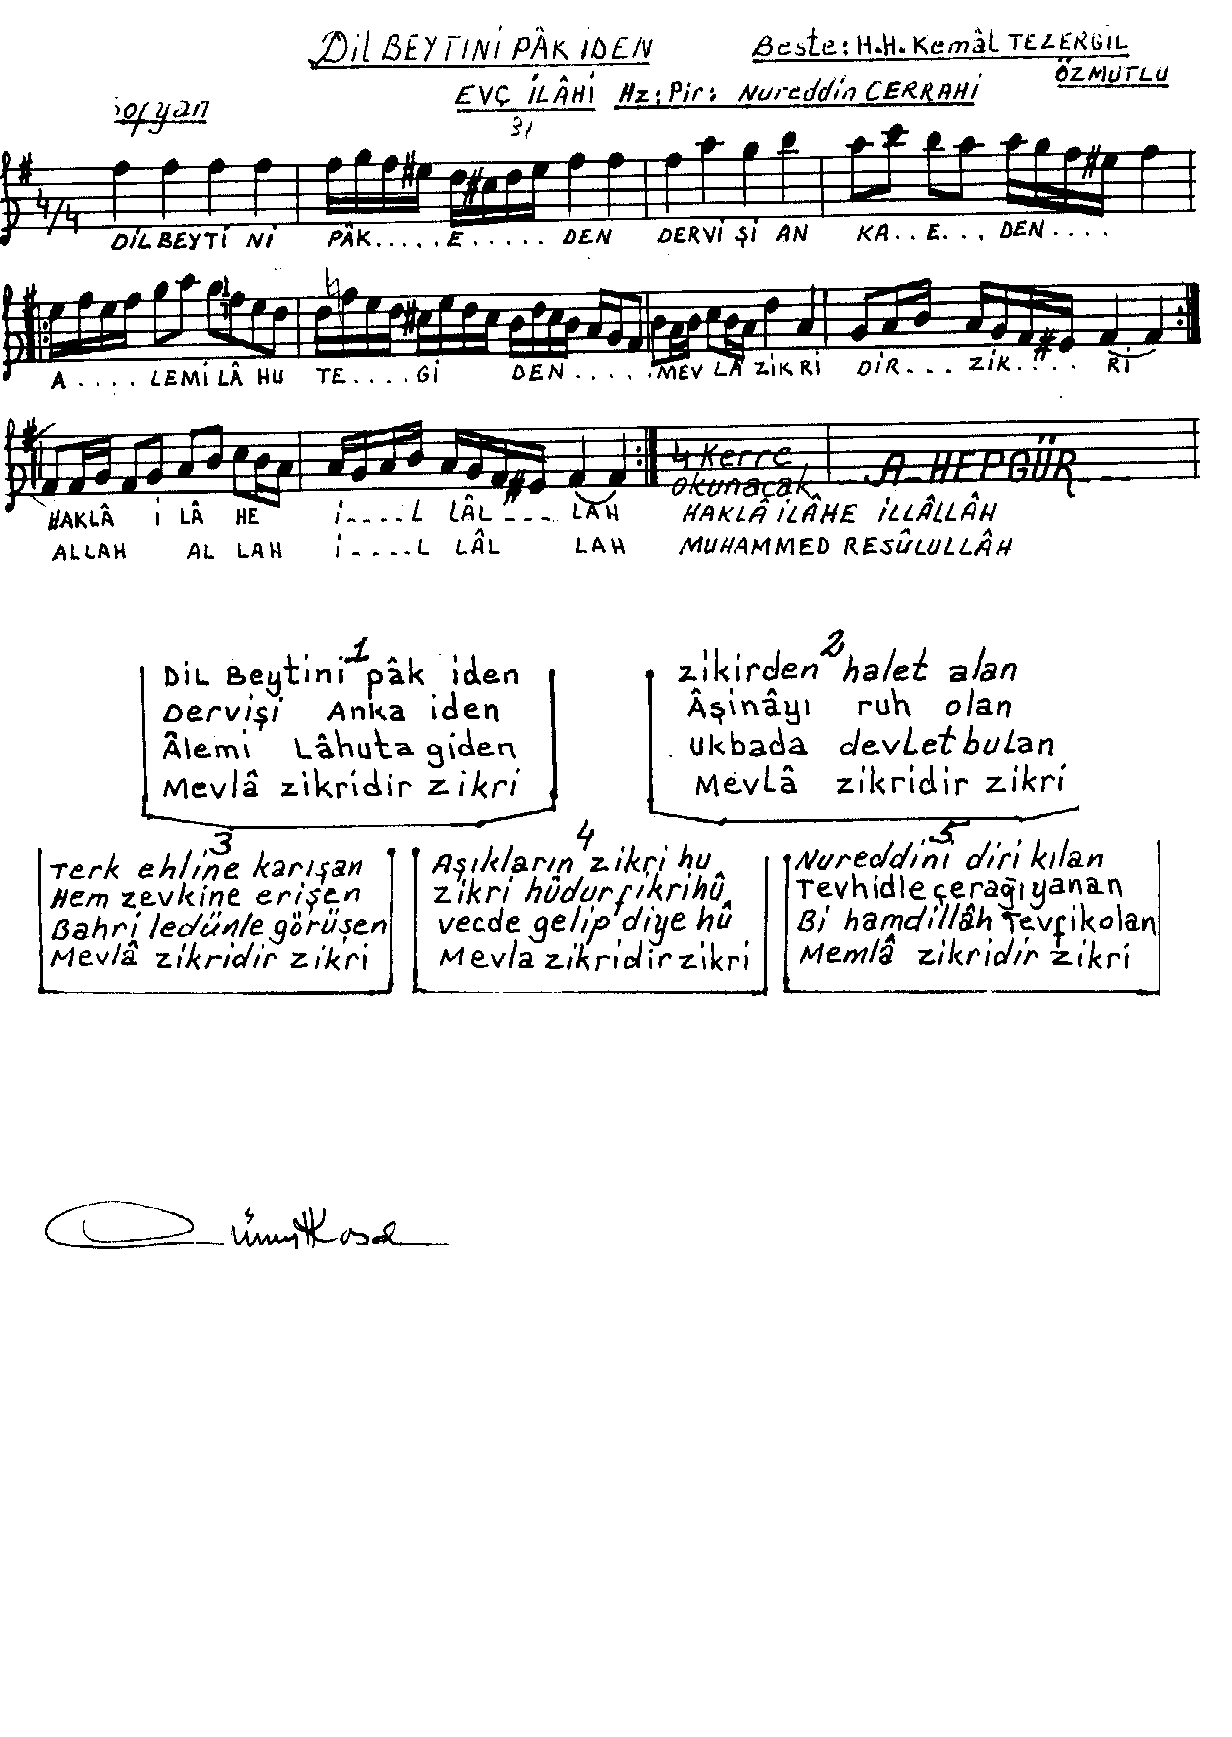 DİL BEYTINİ PÂK IDEN
Beste: H.H. Kemâl TEZERGİL
ÖZMUTLU
EVÇ İLÂHİ Hz: Pir: Nureddin CERRAHİ
sofyan
31
4/4
DİL BEYTİ Nİ PÂK.....E......DEN DERVİ Şİ AN KA..E...DEN....
A.... LEMİ LÂ HU TE....Gİ DEN.....MEV LÂ ZİKRİ DİR... ZİK..... Rİ
4 Kerre
okunaçak
A HEPGÜR
HAKLÂ İ LÂ HE İ----L LÂL ---- LAH HAKLÂ İLÂHE İLLÂLLÂH
ALLAH AL LAH İ----L LÂL LAH MUHAMMED RESÛLULLÂH
1
DİL Beytini pâk iden
Dervişi Anka iden
Âlemi Lâhuta giden
Mevlâ zikridir zikri
2
zikirden halet alan
Âşinâyı ruh olan
ukbada devlet bulan
Mevlâ zikridir zikri
3
Terk ehline karışan
Hem zevkine erişen
Bahri ledünle görüşen
Mevlâ zikridir zikri
4
Aşıkların zikri hu
zikri hûdur fikri hû
vecde gelip diye hû
Mevla zikridir zikri
5
Nureddini diri kılan
Tevhidle çerağı yanan
Bi hamdillâh Tevfik olan
Memlâ zikridir zikri